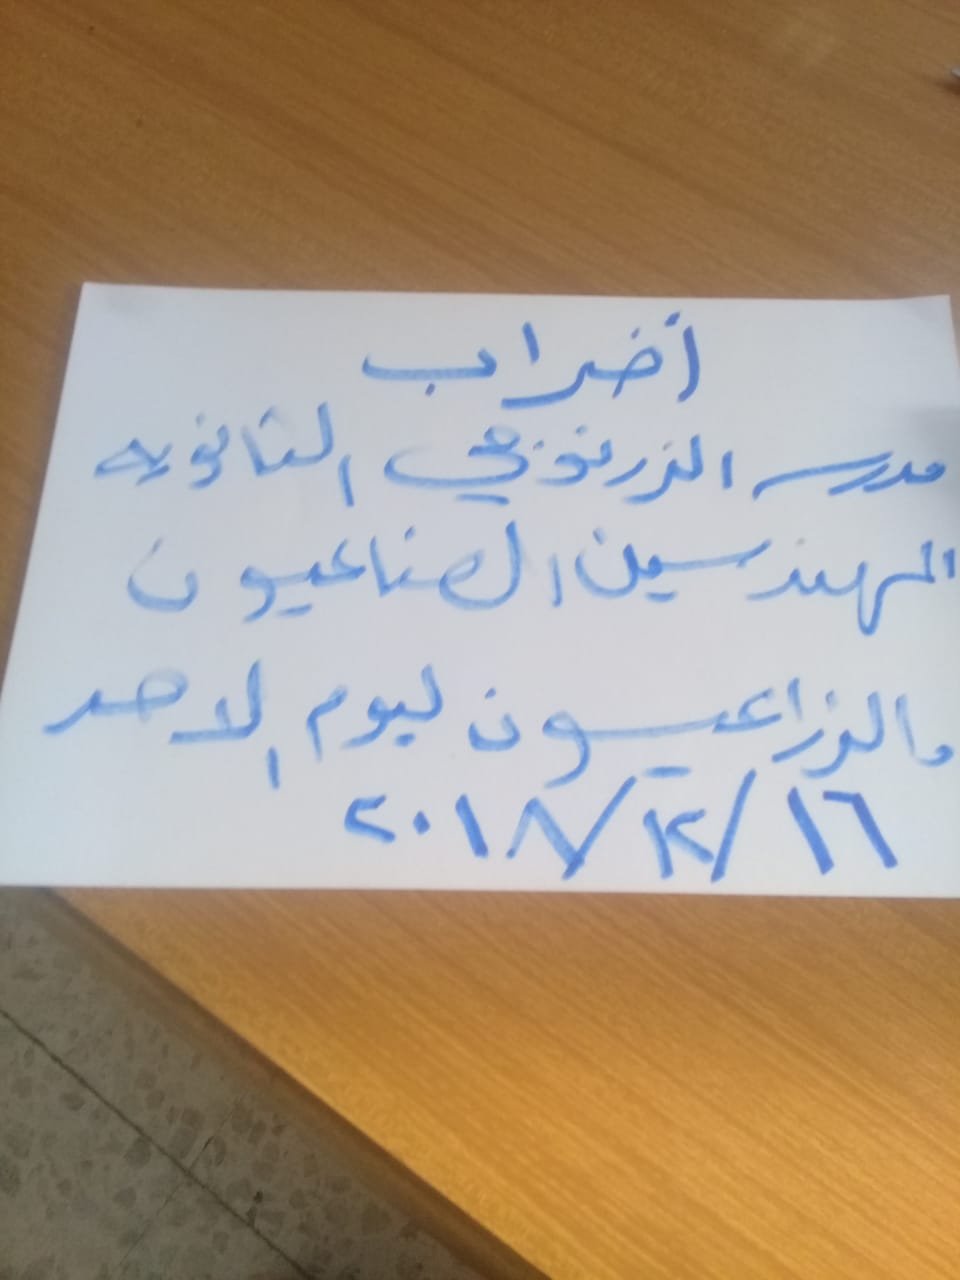 أضراب
مدرسه الزرنوجي الثانويه
المهندسين الصناعيون
والزراعيون ليوم الاحد
١٦/١٢/٢٠١٨